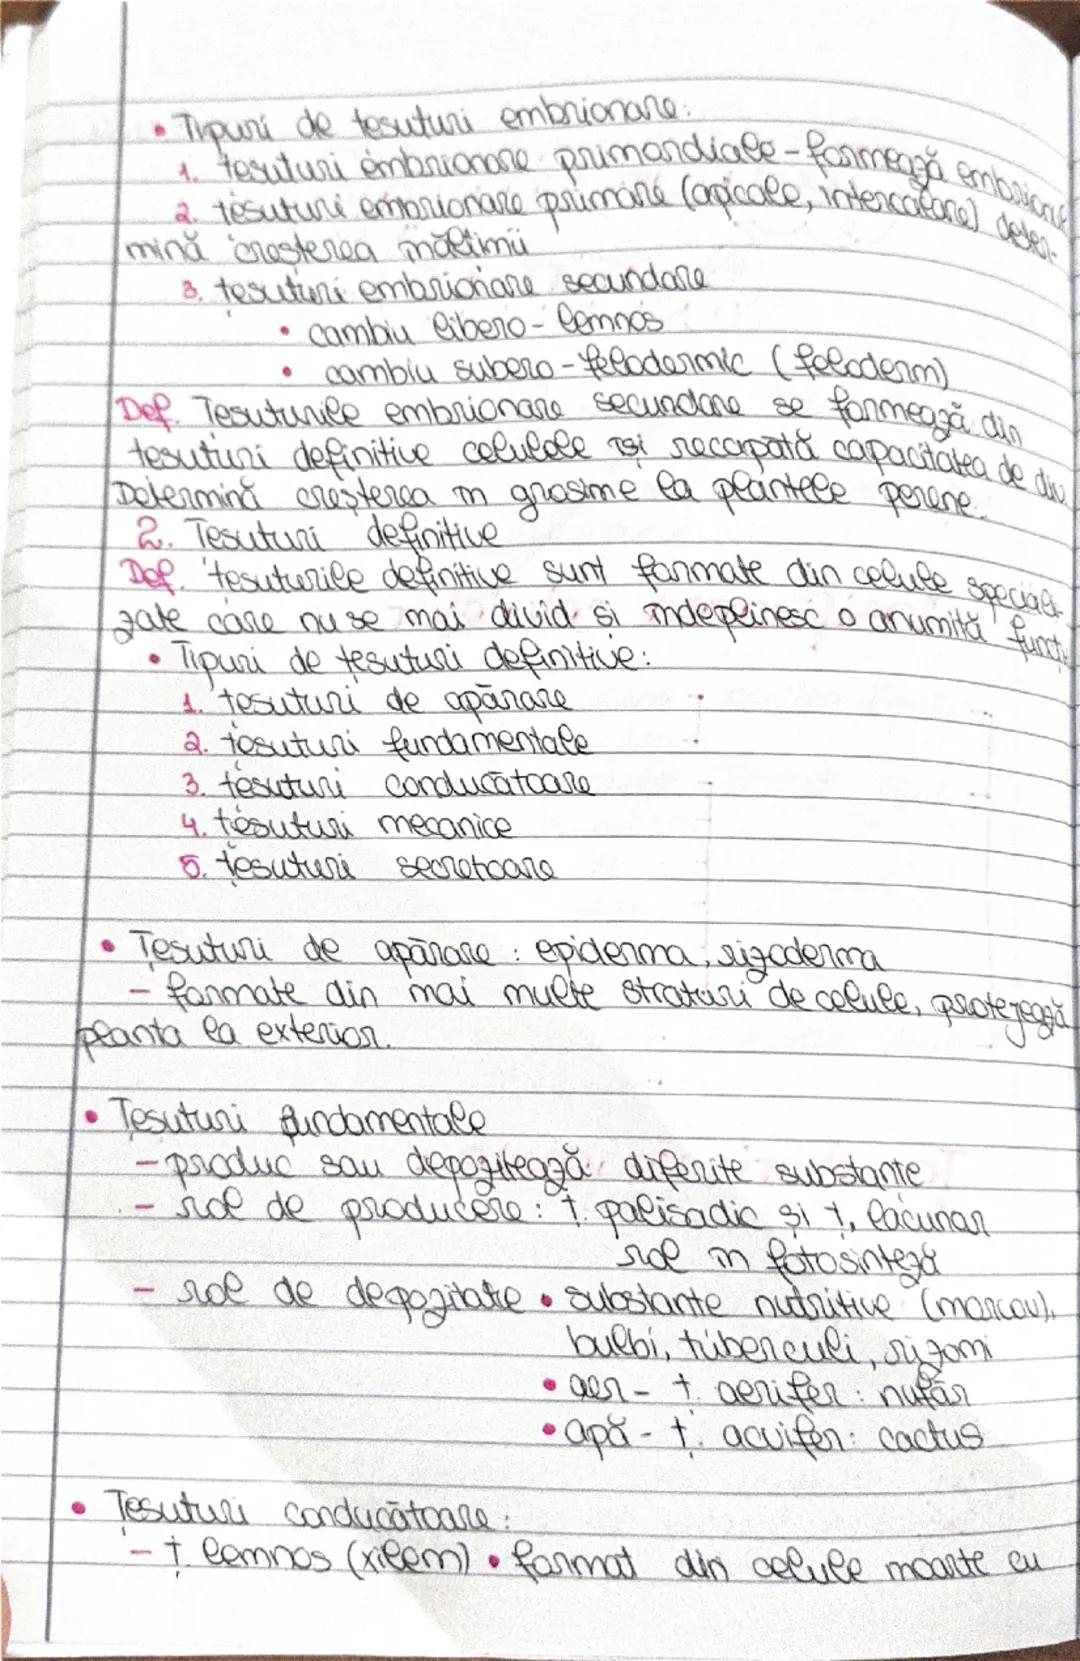 • Tipuri de țesuturi embrionare:
1. țesuturi embrionare primordiale - formează embrionul
2. țesuturi embrionare primare (apicale, intercalare) deter-
mină creșterea înălțimii
3. țesuturi embrionare secundare
• cambiu libero-lemnos
• cambiu subero-felodermic (feloderm)
Def. Țesuturile embrionare secundare se formează din
țesuturi definitive celulele își recapătă capacitatea de div
Determină creșterea în grosime la plantele perene.
2. Țesuturi definitive
Def. țesuturile definitive sunt formate din celule speciali-
zate care nu se mai divid și îndeplinesc o anumită funcți
• Tipuri de țesuturi definitive:
1. țesuturi de apărare
2. țesuturi fundamentale
3. țesuturi conducătoare
4. țesuturi mecanice
5. țesuturi secretoare
• Țesuturi de apărare: epiderma, rizoderma
- formate din mai multe straturi de celule, protejează
planta la exterior.
• Țesuturi fundamentale
- produc sau depozitează diferite substanțe
- rol de producere: ț. palisadic și ț. lacunar
rol în fotosinteză
- rol de depozitate • substanțe nutritive (morcov),
bulbi, tuberculi, rizomi
• aer - ț. aerifer: nufăr
• apă - ț. acvifer: cactus
• Țesuturi conducătoare:
- ț. lemnos (xilem) • format din celule moarte cu